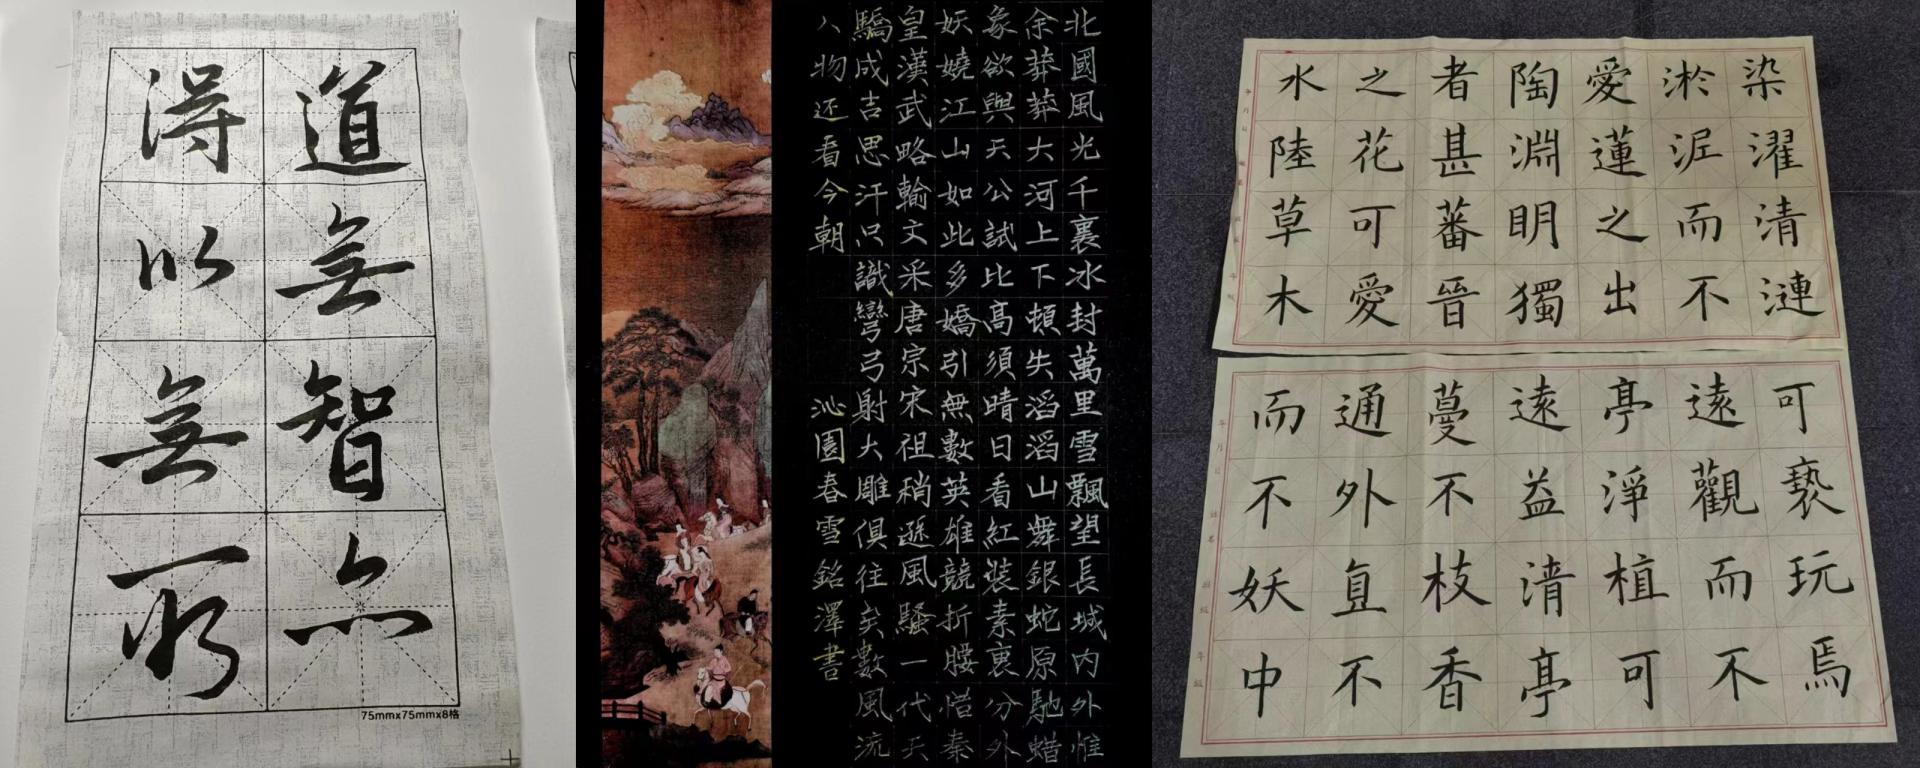 道無智亦
得以無所
北國風光千裏冰封萬里雪飄望長城內外惟
余莽莽大河上下頓失滔滔山舞銀蛇原馳蜡
象欲與天公試比高須晴日看紅裝素裹分外
妖嬈江山如此多嬌引無數英雄競折腰惜秦
皇漢武略輸文采唐宗宋祖稍遜風騷一代天
驕成吉思汗只識彎弓射大雕俱往矣數風流
人物还看今朝
沁園春雪銘澤書
水陸草木
之花可愛
者甚蕃晉
陶淵眀獨
愛蓮之出
淤泥而不
染濯清漣
而不妖中
通外直不
蔓不枝香
遠益清亭
亭淨植可
遠觀而不
可褻玩焉
75mmx75mmx8格